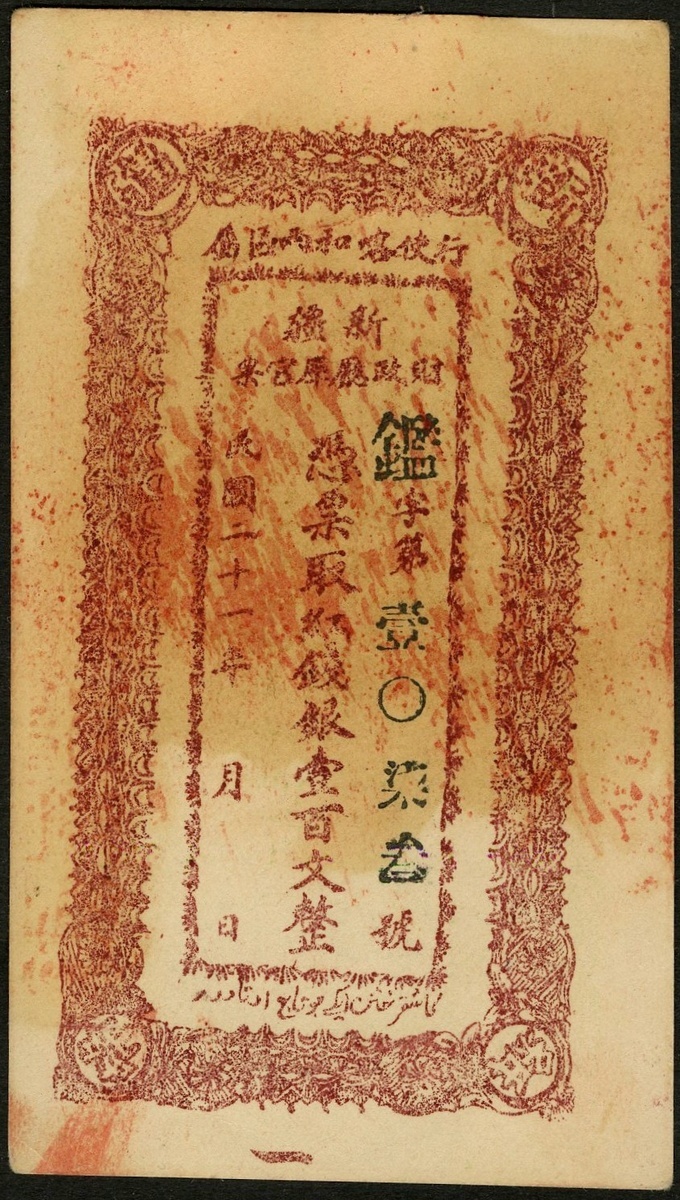 行使喀和兩區爲
新疆
財政廳庫官票
鑑字第壹〇柒叁號
憑票取紅錢銀壹百文整
民國二十一年 月 日